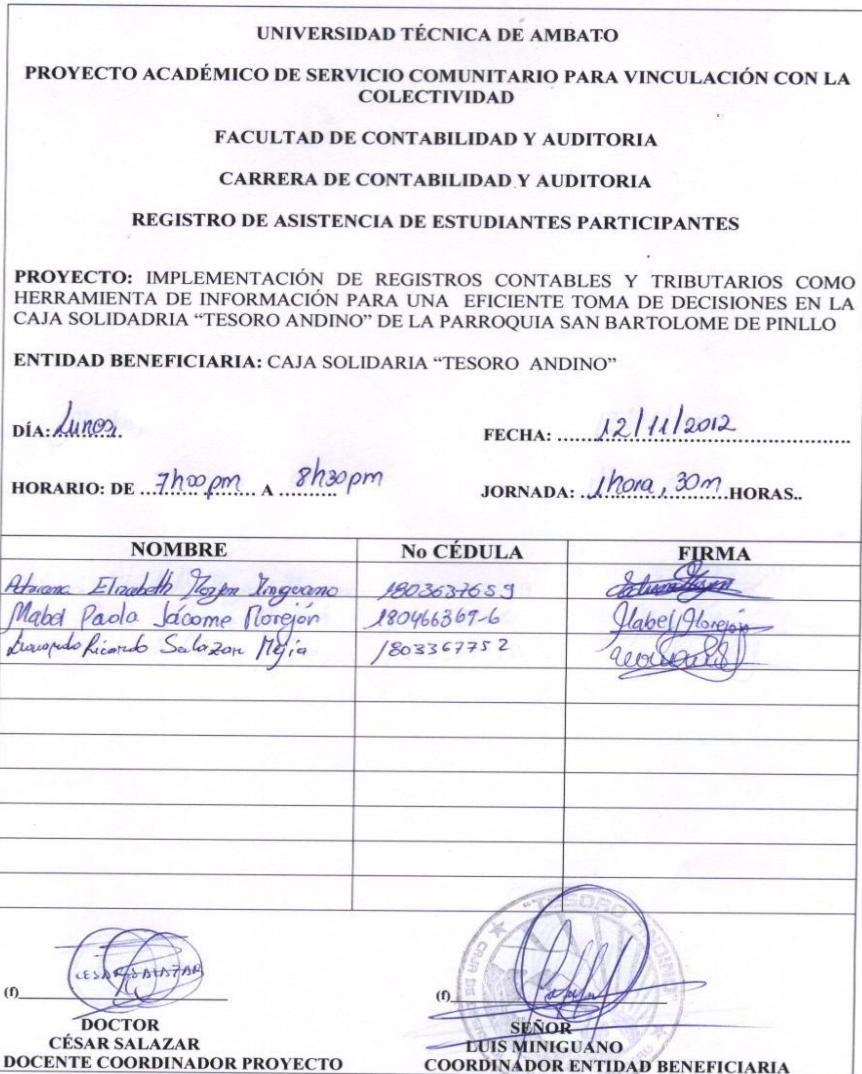 UNIVERSIDAD TÉCNICA DE AMBATO
PROYECTO ACADÉMICO DE SERVICIO COMUNITARIO PARA VINCULACIÓN CON LA
COLECTIVIDAD
FACULTAD DE CONTABILIDAD Y AUDITORIA
CARRERA DE CONTABILIDAD Y AUDITORIA
REGISTRO DE ASISTENCIA DE ESTUDIANTES PARTICIPANTES
PROYECTO: IMPLEMENTACIÓN DE REGISTROS CONTABLES Y TRIBUTARIOS COMO
HERRAMIENTA DE INFORMACIÓN PARA UNA EFICIENTE TOMA DE DECISIONES EN LA
CAJA SOLIDADRIA “TESORO ANDINO” DE LA PARROQUIA SAN BARTOLOME DE PINLLO
ENTIDAD BENEFICIARIA: CAJA SOLIDARIA “TESORO ANDINO”
DÍA: Lunes FECHA: 12/11/2012
HORARIO: DE 7h00pm A 8h30pm JORNADA: 1hora, 30m HORAS..
NOMBRE No CÉDULA FIRMA
Elizabeth 1803637659
Mabel Paola Jácome Morejón 180466369-6 Mabel Morejón
Ricardo Salazar Mejía 1803367752
"TESORO ANDINO"
CESAR SALAZAR
(f) (f)
DOCTOR SEÑOR
CÉSAR SALAZAR LUIS MINIGUANO
DOCENTE COORDINADOR PROYECTO COORDINADOR ENTIDAD BENEFICIARIA